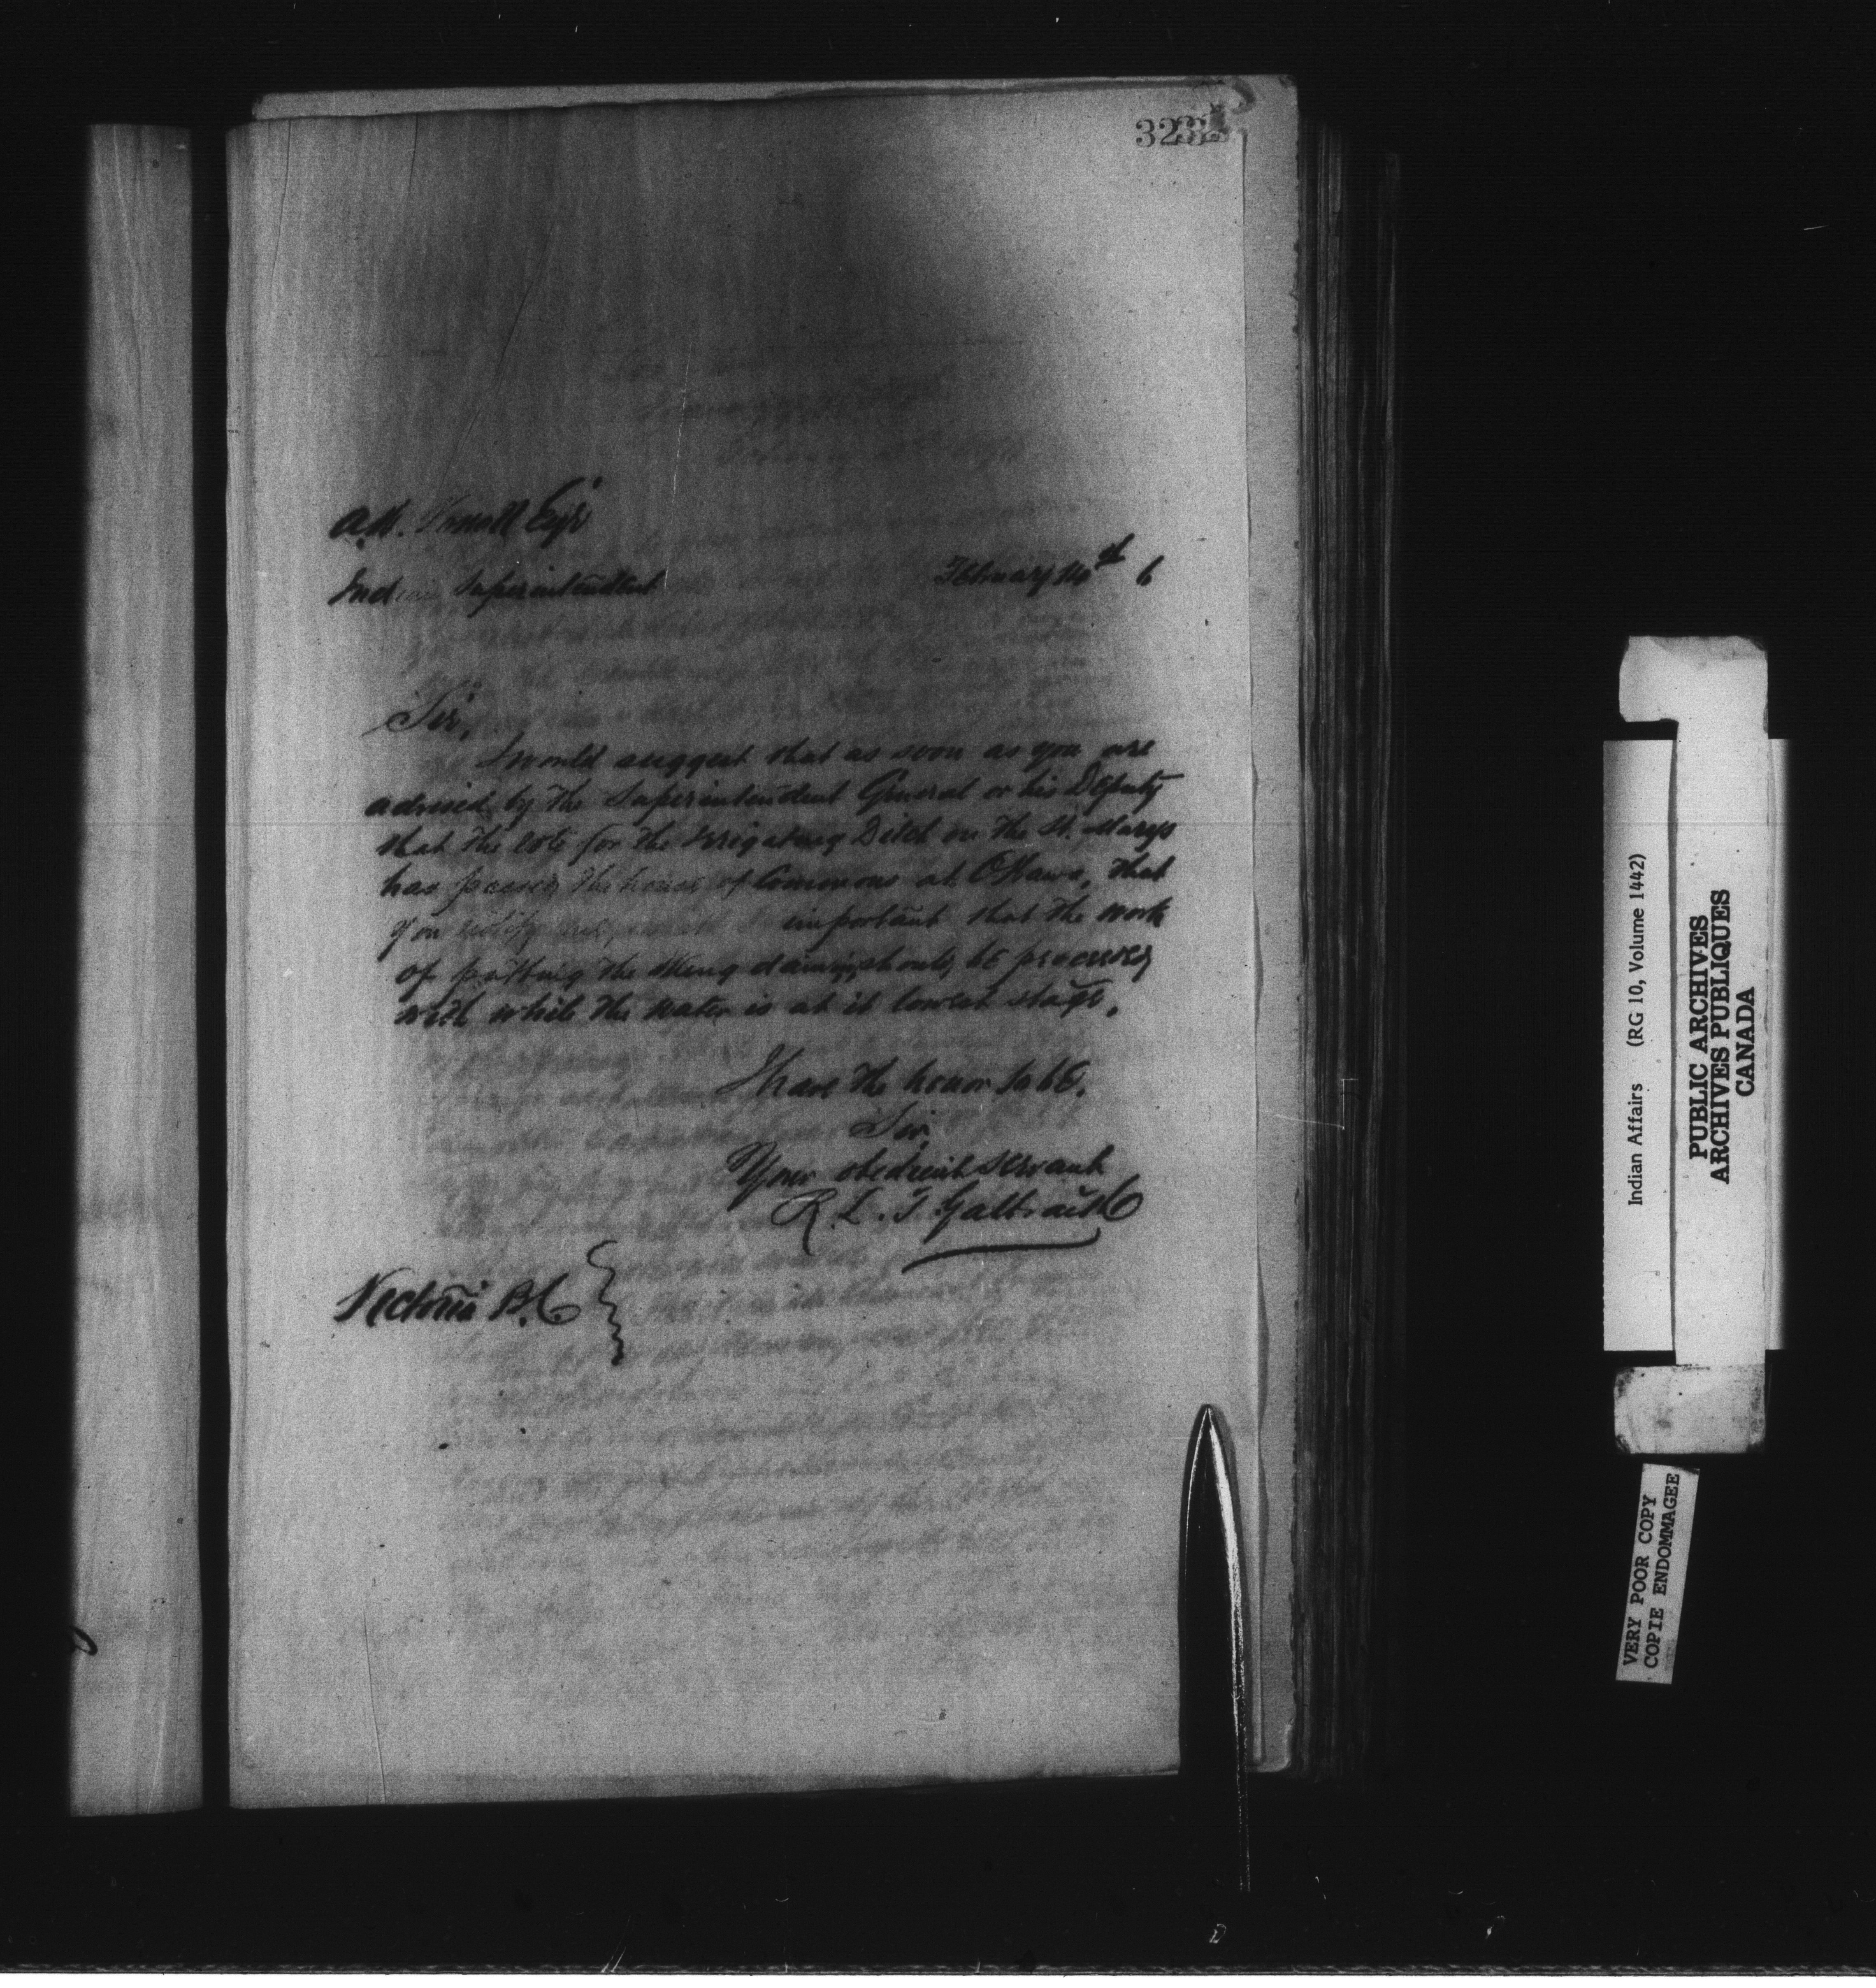 323
A.W. Vowell Esqr
Indian Superintendent
February 14th 6
Sir,
I would suggest that as soon as you are
advised by the Superintendent General or his Deputy
that the vote for the Irrigating Ditch on the St. Marys
has passed the house of Commons at Ottawa, that
you notify me, important that the work
of putting the Wing dam in, should be proceeded
with while the water is at it lowest stage.
I have the honor to be,
Sir,
Your obedient servant
R. L. T. Galbraith
Victoria B.C
Indian Affairs (RG 10, Volume 1442)
PUBLIC ARCHIVES
ARCHIVES PUBLIQUES
CANADA
VERY POOR COPY
COPIE ENDOMMAGEE